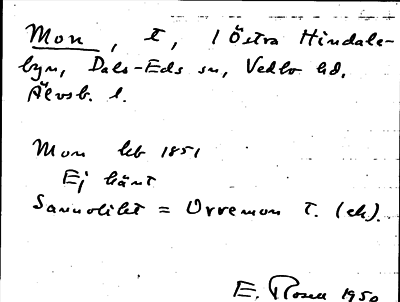 Mon, T, 1 Östra Hindale-
byn, Dals-Eds sn, Vedbo hd.
Älvsb. l.
Mon hb 1851
Ej känt
Sannolikt = Orremon T. (ek).
E. Rosell 1950